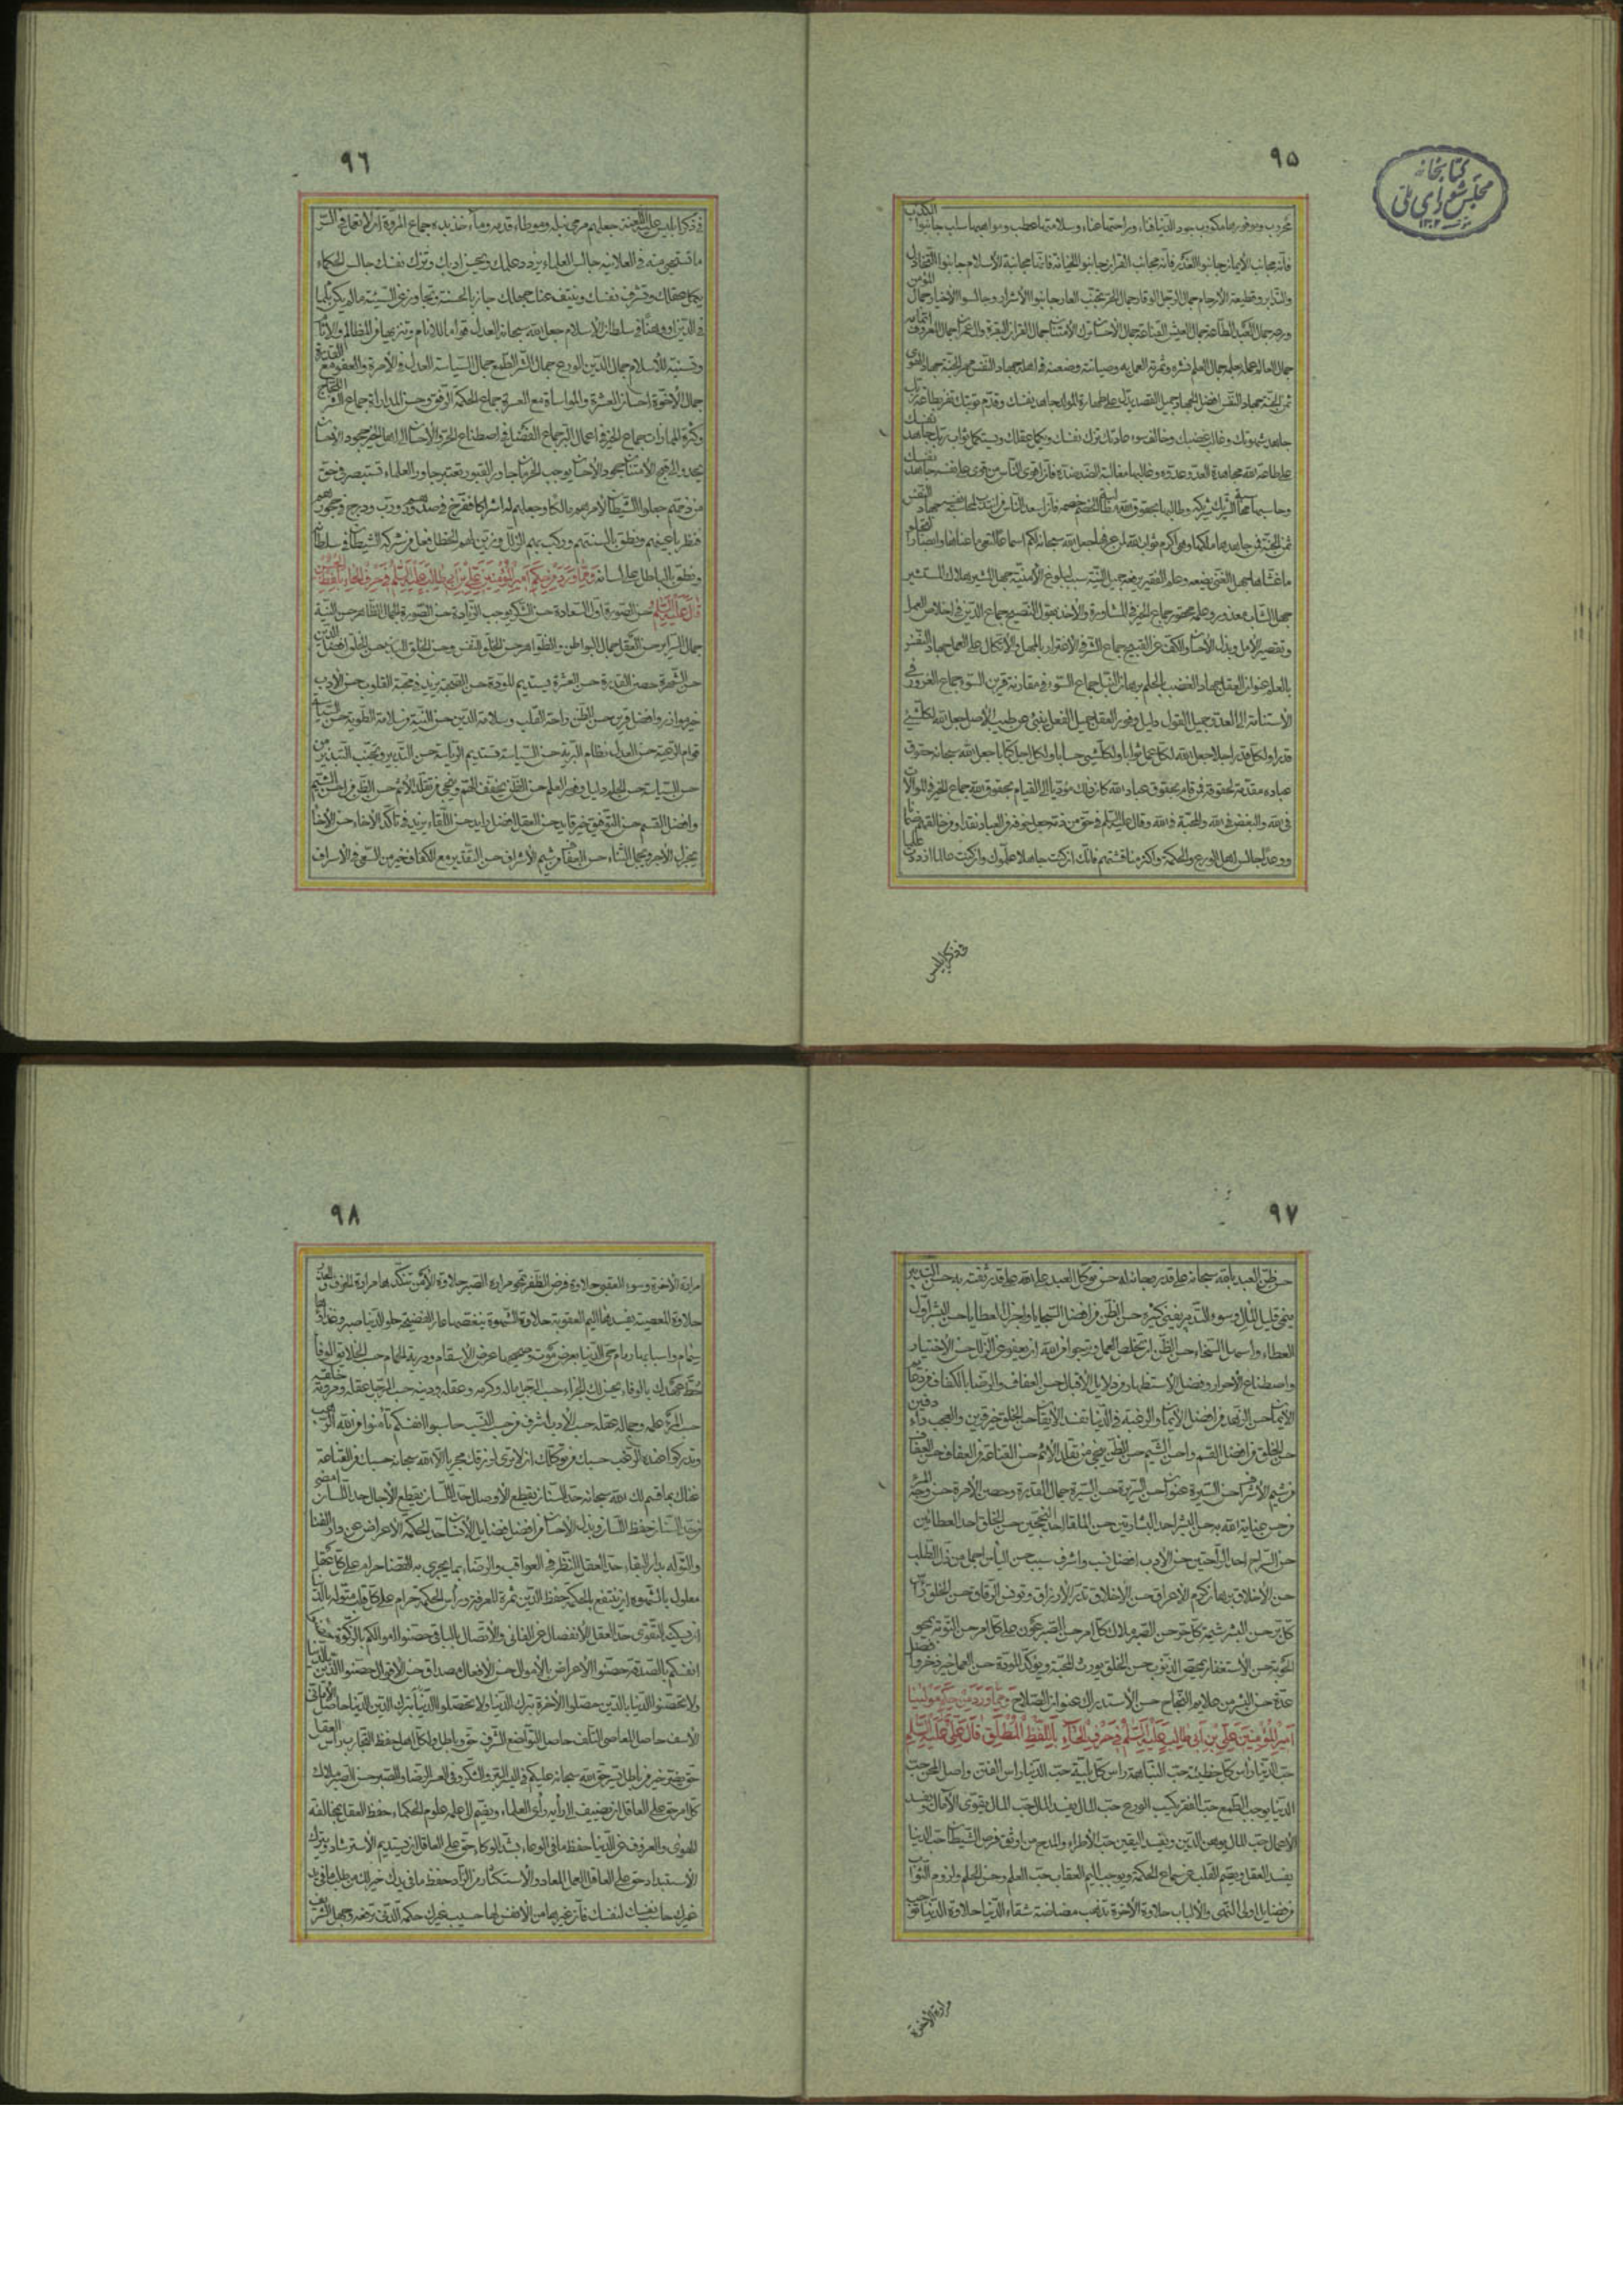 ٩٥
کتابخانه
مجلس شورای ملی
محروب وموفورها منكوب جود الدنيا فناء وراحتها عناء وسلامتها عطب ومواهبها سلب جانبوا الكذب
فانه مجانب الايمان جانبوا الغدر فانه مجانب القران جانبوا الخيانة فانها مجانبة الاسلام جانبوا التخاذل
والتدابر وقطيعة الارحام جمال الرجل الوقار جمال الحر تجنب العار جانبوا الاشرار وجالسوا الاخيار جمال المؤمن
ورعه جمال العبد الطاعة جمال العيش القناعة جمال الاحسان ترك الامتنان جمال القران البقرة وال عمران جمال المعروف اتمامه
جمال العالم عمله بعلمه جمال العلم نشره وثمرته العمل به وصيانته وضعه في اهله جهاد النفس مهر الجنة جهاد الهوى
ثمن الجنة جهاد النفس افضل الجهاد جميل القصد يدل على طهارة المولد جاهد نفسك وقدم توبتك تفز بطاعة ربك
جاهد شهوتك وغالب غضبك وخالف سوء عادتك تزك نفسك ويكمل عقلك وتستكمل ثواب ربك جاهد نفسك
على طاعة الله مجاهدة العدو عدوه وغالبها مغالبة الضد ضده فان اقوى الناس من قوى على نفسه جاهد نفسك
وحاسبها محاسبة الشريك شريكه وطالبها بحقوق الله مطالبة الخصم خصمه فان اسعد الناس من انتدب لمحاسبة نفسه جهاد النفس
ثمن الجنة فمن جاهدها ملكها وهي اكرم ثواب الله لمن عرفها جعل الله سبحانه لكم اسماعا لتعي ما عناها وابصارا لتجلو
ما غشاها جهل الغني يضعه وعلم الفقير يرفعه جميل النية سبب لبلوغ الامنية جهل المشير هلاك المستشير
جهل الشاب معذور وعلمه محقور جماع الخير في المشاورة والاخذ بقول النصيح جماع الدين في اخلاص العمل
وتقصير الامل وبذل الاحسان والكف عن القبيح جماع الشر في الاغترار بالمهل والاتكال على العمل جهاد النفس
بالعلم عنوان العقل جهاد الغضب بالحلم برهان النبل جماع السوء في مقارنة قرين السوء جماع الغرور في
الاستنامة الى العدو جميل القول دليل وفور العقل جميل الفعل ينبئ عن طيب الاصل جعل الله لكل شيء
قدرا ولكل قدر اجلا جعل الله لكل عمل ثوابا ولكل شيء حسابا ولكل اجل كتابا جعل الله سبحانه حقوق
عباده مقدمة لحقوقه فمن قام بحقوق عباد الله كان ذلك مؤديا الى القيام بحقوق الله جماع الخير في الموالاة
في الله والبغض في الله والمحبة في الله وقال عليه السلم في حق من ذمه جعل خوفه من العباد نقدا ومن خالقه ضمانا
ووعدا جالس اهل الورع والحكمة واكثر مناقشتهم فانك ان كنت جاهلا علموك وان كنت عالما ازددت علما
في ذكر ابليس
٩٦
في ذكر ابليس عليه اللعنة جعلهم مرمى نبله وموطاء قدمه وماخذ يده جماع المروة ان لا تعمل في السر
ما تستحي منه في العلانية جالس العلماء يزدد علمك ويحسن ادبك وتزك نفسك جالس الحكماء
يكمل عقلك وتشرف نفسك وينتف عنك جهلك جاز بالحسنة وتجاوز عن السيئة ما لم يكن ثلما
في الدين او وهنا في سلطان الاسلام جعل الله سبحانه العدل قواما للانام وتنزيها من المظالم والاثام
وتسنية للاسلام جمال الدين الورع جمال الشر الطمع جمال السياسة العدل في الامرة والعفو مع القدرة
جمال الاخوة احسان العشرة والمواساة مع العسرة جماع الحكمة الرفق وحسن المداراة جماع الشر اللجاج
وكثرة المماراة جماع الخير في اعمال البر جماع الفضل في اصطناع الحر والاحسان الى اهل الخير جحود الاحسان
يحدو على قبح الامتنان جحود الاحسان يوجب الحرمان جاور القبور تعتبر جاور العلماء تستبصر في حق
من ذمهم جعلوا الشيطان لامرهم مالكا وجعلهم له اشراكا ففرخ في صدورهم ودب ودرج في حجورهم
فنظر باعينهم ونطق بالسنتهم وركب بهم الزلل وزين لهم الخطل فعل من شركه الشيطان في سلطانه
ونطق بالباطل على لسانه ومما ورد من حكم امير المؤمنين علي بن ابي طالب عليه السلم في حرف الحاء بلفظ حسن
قال عليه السلم حسن الصورة اول السعادة حسن الشكر يوجب الزيادة حسن الصورة الجمال الظاهر حسن النية
جمال السرائر حسن العقل جمال البواطن والظواهر حسن الخلق للنفس وحسن الخلق للبدن حسن الخلق افضل الدين
حسن الشهرة حصن القدرة حسن العشرة يستديم المودة حسن الصحبة يزيد في محبة القلوب حسن الادب
خير موازر وافضل قرين حسن الظن راحة القلب وسلامة الدين حسن النية من سلامة الطوية حسن السياسة
قوام الرعية حسن العدل نظام البرية حسن السياسة يستديم الرياسة حسن التدبير وتجنب التبذير من
حسن السياسة حسن الحلم دليل وفور العلم حسن الظن يخفف الهم وينجي من تقلد الاثم حسن الظن من احسن الشيم
وافضل القسم حسن التوفيق خير قايد حسن العقل افضل رايد حسن اللقاء يزيد في تاكد الاخاء حسن الاخاء
يجزل الاجر ويجمل الثناء حسن العفاف من شيم الاشراف حسن التقدير مع الكفاف خير من السعي في الاسراف
٩٧
حسن ظن العبد بالله سبحانه على قدر رجائه له حسن توكل العبد على الله على قدر ثقته به حسن التدبير
ينمي قليل المال وسوء التدبير يفني كثيره حسن الظن من افضل السجايا واجزل العطايا حسن البشر اول
العطاء واسهل السخاء حسن الظن ان تخلص العمل وترجو من الله ان يعفو عن الزلل حسن الاختيار
واصطناع الاحرار وفضل الاستظهار من دلايل الاقبال حسن العفاف والرضا بالكفاف من دعائم
الايمان حسن الزهد من افضل الايمان والرغبة في الدنيا تفسد الايقان حسن الخلق خير قرين والعجب داء دفين
حسن الخلق من افضل القسم واحسن الشيم حسن الظن ينجي من تقلد الاثم حسن القناعة من العفاف حسن العفاف
من شيم الاشراف حسن السيرة عنوان حسن السريرة حسن السيرة جمال القدرة وحصن الامرة حسن وجه المرء
من حسن عناية الله به حسن البشر احد البشارتين حسن اللقاء احد النجحين حسن الخلق احد العطائين
حسن السراح احد الراحتين حسن الادب افضل نسب واشرف سبب حسن الياس اجمل من ذل الطلب
حسن الاخلاق برهان كرم الاعراق حسن الاخلاق تدر الارزاق وتونس الرفاق حسن الخلق راس
كل بر حسن البشر شيمة كل حر حسن الصبر ملاك كل امر حسن الصبر عون على كل امر حسن التوبة يمحو
الحوبة حسن الاستغفار يمحص الذنوب حسن الخلق يورث المحبة ويؤكد المودة حسن العمل خير ذخر وافضل
عدة حسن البشر من علايم النجاح حسن الاستدراك عنوان الصلاح ومما ورد من حكم مولينا
امير المؤمنين علي بن ابي طالب عليه السلم في حرف الحاء باللفظ المطلق قال علي عليه السلم
حب الدنيا راس كل خطيئة حب النباهة راس كل بلية حب الدنيا راس الفتن واصل المحن حب
الدنيا يوجب الطمع حب الفقر يكسب الورع حب المال يفسد المال حب المال يقوى الامال ويفسد
الاعمال حب المال يوهن الدين ويفسد اليقين حب الاطراء والمدح من اوثق فرص الشيطان حب الدنيا
يفسد العقل ويصم القلب عن سماع الحكمة ويوجب اليم العقاب حب العلم وحسن الحلم ولزوم الثواب
من فضايل اولى النهى والالباب حلاوة الاخرة تذهب مضاضة شقاء الدنيا حلاوة الدنيا توجب
مرارة الاخرة
٩٨
مرارة الاخرة وسوء العقبى حلاوة فرض الظفر تمحو مرارة الصبر حلاوة الامن تنكدها مرارة الخوف والحذر
حلاوة المعصية يفسدها اليم العقوبة حلاوة الشهوة ينغصها عار الفضيحة حلو الدنيا صبر وغذاؤها
سمام واسبابها رمام حي الدنيا بعرض موت وصحيحها عرض الاسقام ودريئة الحمام حسب الخلايق الوفا
حط عهدك بالوفاء يحسن لك الجزاء حسب الرجل ماله وكرمه وعقله ودينه حسب الرجل عقله ومروته خلقه
حسب المرء علمه وجماله عقله حسب الادب اشرف من حسب النسب حاسبوا انفسكم تامنوا من الله الرهب
وتدركوا عنده الرغب حسبك من توكلك ان لا ترى لرزقك مجريا الا الله سبحانه حسبك من القناعة
غناك بما قسم لك الله سبحانه حد السنان يقطع الاوصال حد اللسان يقطع الاجال حد اللسان امضى
من حد السنان حفظ اللسان وبذل الاحسان من افضل فضايل الانسان حد الحكمة الاعراض عن دار الفناء
والتوله بدار البقاء حد العقل النظر في العواقب والرضاء بما يجري به القضاء حرام على كل عقل
معلول بالشهوة ان ينتفع بالحكمة حفظ الدين ثمرة المعرفة وراس الحكمة حرام على كل قلب متوله بالدنيا
ان يسكنه التقوى حد العقل الانفصال عن الفاني والاتصال بالباقي حصنوا اموالكم بالزكوة
انفسكم بالصدقة حصنوا الاعراض بالاموال حسن الافعال مصداق حسن الاقوال حصنوا الدين بالدنيا
ولا تحصنوا الدنيا بالدين حصلوا الاخرة بترك الدنيا ولا تحصلوا الدنيا بترك الدين حاصل الاماني
الاسف حاصل المعاصي التلف حاصل التواضع الشرف حق وباطل ولكل اهل حفظ التجارب راس العقل
حق يضر خير من باطل يسر حق الله سبحانه عليكم في اليسر البر والشكر وفي العسر الرضا والصبر حسن الصبر ملاك
كل امر حق على العاقل ان يضيف الى رأيه رأى العلماء ويضم الى علمه علوم الحكماء حفظ العقل بمخالفة
الهوى والعزوف عن الدنيا حفظ ما في الوعاء بشد الوكاء حق على العاقل ان يستديم الاسترشاد ويترك
الاستبداد حق على العاقل العمل للمعاد والاستكثار من الزاد حفظ ما في يدك خير لك من طلب ما في يد
غيرك حاسب نفسك لنفسك فان غيرها من الانفس لها حسيب غيرك حكمة الدني ترفعه وجهل الشريف